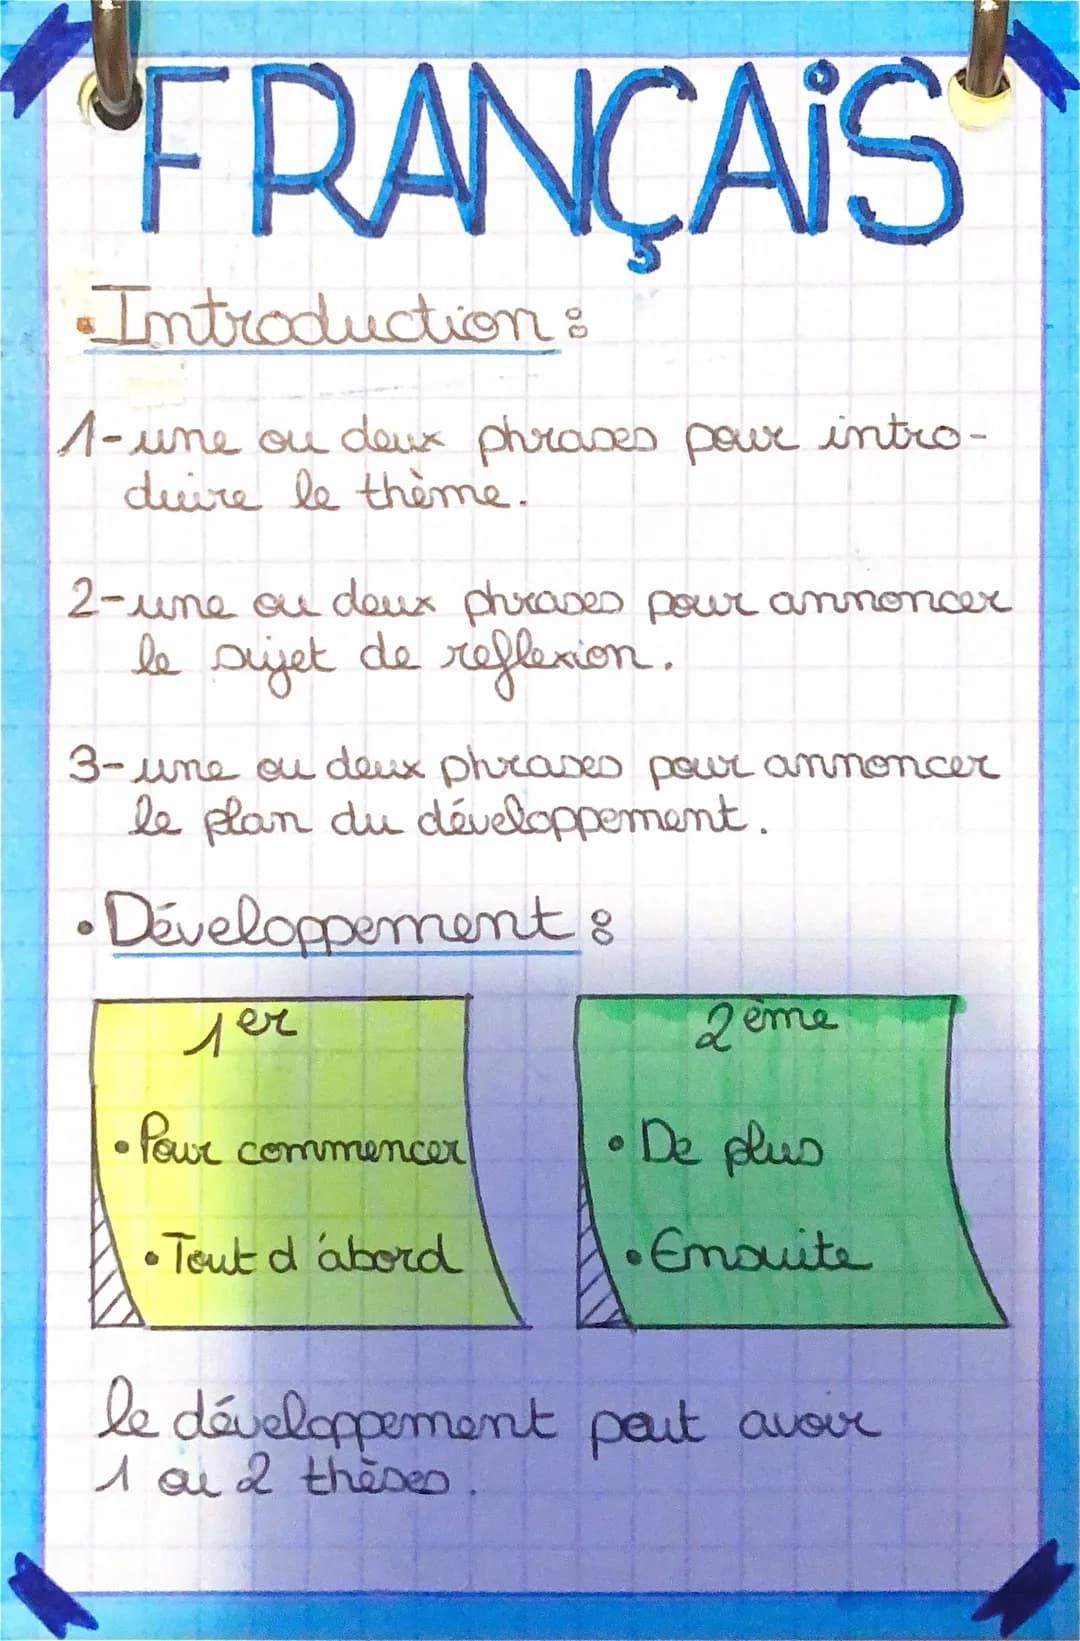 FRANÇAIS
• Introduction :
1- une ou deux phrases pour intro-
duire le thème.
2- une ou deux phrases pour annoncer
le sujet de reflexion.
3- une ou deux phrases pour annoncer
le plan du développement.
• Développement :
1er
• Pour commencer
• Tout d'abord
2ème
• De plus
• Ensuite
le développement peut avoir
1 ou 2 thèses.